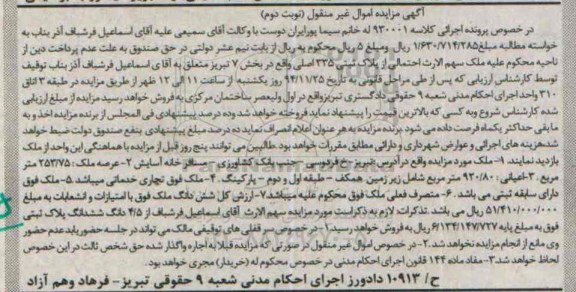 آگهی مزایده اموال غیر منقول (نوبت دوم)
در خصوص پرونده اجرائی کلاسه ۹۳۰۰۰۱ له خانم سیما پورایران دوست با وکالت آقای سمیعی علیه آقای اسماعیل فرشباف آذر بناب به
خواسته مطالبه مبلغ ۱/۶۳۰/۷۱۴/۲۸۵ ریال ومبلغ ۵ ریال محکوم به ریال از بابت نیم عشر دولتی در حق صندوق به علت عدم پرداخت دین از
ناحیه محکوم علیه ملک سهم الارث احتمالی از پلاک ثبتی ۳۳۵ اصلی واقع در بخش ۷ تبریز متعلق به آقای اسماعیل فرشباف آذر بناب توقیف
توسط کارشناس ارزیابی که پس از طی مراحل قانونی به تاریخ ۹۴/۱۱/۲۵ روز یکشنبه از ساعت ۱۱ الی ۱۲ ظهر از طریق مزایده در طبقه ۳ اتاق
۳۱۰ واحد اجرای احکام مدنی شعبه ۹ حقوقی دادگستری تبریز واقع در اول ولیعصر ساختمان مرکزی به فروش خواهد رسید مزایده از مبلغ ارزیابی
شده کارشناس شروع وبه کسی که بالاترین قیمت را پیشنهاد نماید فروخته خواهد شد وده درصد پیشنهادی فی المجلس از برنده مزایده اخذ و به
ما بقی حداکثر یکماه فرصت داده می شود .برنده مزایده به هر عنوان اعلام انصراف نماید ده درصد مبلغ پیشنهادی بنفع صندوق دولت ضبط خواهد
شد.هزینه های اجرائی و عوارض شهرداری و دارائی مطابق مقررات خواهد بود.طالبین می توانند پنج روز قبل از مزایده با هماهنگی این واحد از ملک
بازدید نمایند. ۱- ملک مورد مزایده واقع در آدرس تبریز خ فردوسی – جنب بانک کشاورزی – مسافر خانه آسایش ۲- عرصه ملک: ۲۵۳/۷۵ متر
مربع .۳-اعیانی: ۹۲۰/۸۰ متر مربع شامل زیر زمین همکف – طبقه اول و دوم – پارکینگ .۴-ملک فوق تجاری خدماتی میباشد .۵-ملک فوق
دارای سابقه ثبتی می باشد .۶-متصرف فعلی ملک فوق محکوم علیه میباشد ۷-ارزش کل شش دانگ ملک فوق با امتیازات و انشعابات به مبلغ
۵۱/۴۱۰/۰۰۰/۰۰۰ ریال می باشد. تذکرات: لازم به ذکر است مورد مزایده سهم الارث آقای اسماعیل فرشباف از ۴/۵ دانگ ششدانگ پلاک ثبتی
فوق به مبلغ پایه ۶/۱۳۴/۱۴۷/۷۲۷ ریال به فروش خواهد رسید.۱-در خصوص سر قفلی های توقیفی مالک می تواند در جلسه حضور یابد عدم حضور
وی مانع از انجام مزایده نخواهد شد .۲- در خصوص اموال غیر منقول در صورتی که مزایده قبلا به اجاره واگذار شده حق شخص ثالث در این خصوص
لحاظ خواهد شد.۳-مفاد ماده ۱۴۴ قانون اجرای احکام مدنی در خصوص محکوم له (خریدار) مجری خواهد بود.
ح/ ۱۰۹۱۳ دادورز اجرای احکام مدنی شعبه ۹ حقوقی تبریز – فرهاد وهم آزاد